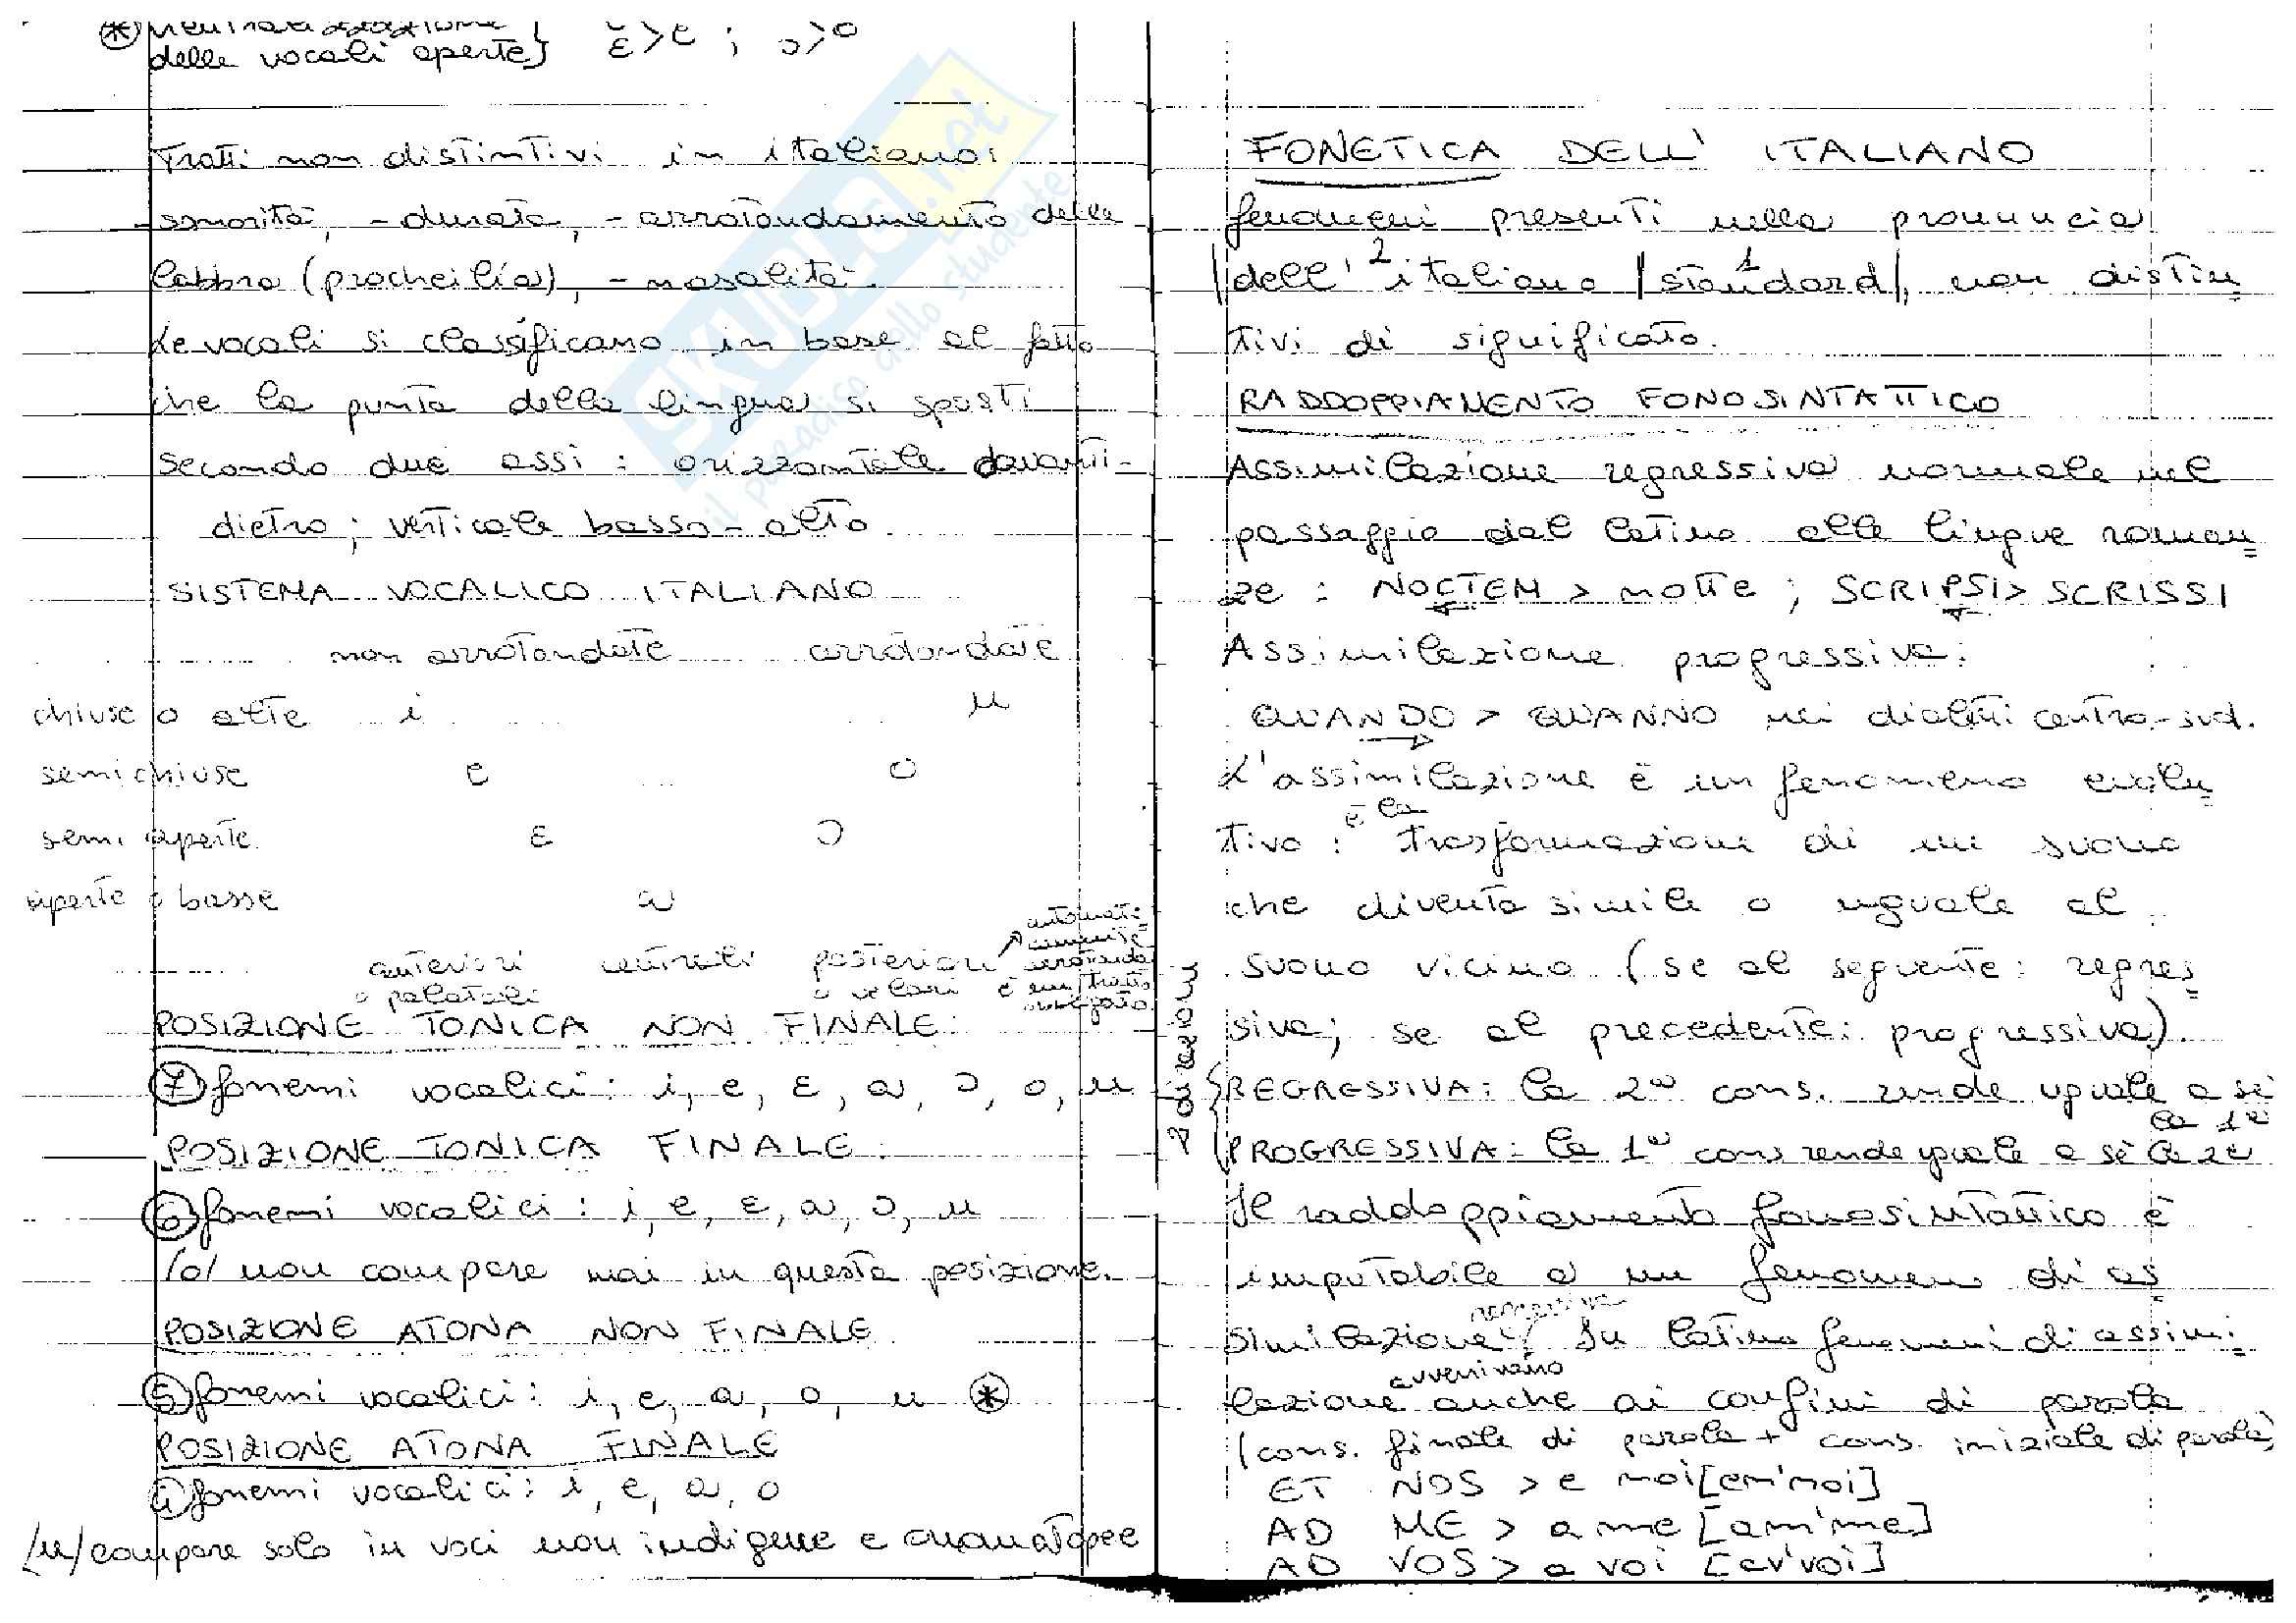 ⊛ neutralizzazione
delle vocali aperte} ε>e ; ɔ>o
Tratti non distintivi in italiano:
- sonorità, - durata, - arrotondamento delle
labbra (procheilia), - nasalità.
Le vocali si classificano in base al fatto
che la punta della lingua si sposti
secondo due assi: orizzontale davanti-
dietro; verticale basso-alto.
SISTEMA VOCALICO ITALIANO
non arrotondate arrotondate
chiuse o alte i u
semichiuse e o
semiaperte ε ɔ
aperte o basse a
anteriori centrali posteriori
o palatali o velari
automati-
camente
arrotonda
è un tratto
obbligato
POSIZIONE TONICA NON FINALE:
⑦ fonemi vocalici: i, e, ε, a, ɔ, o, u
POSIZIONE TONICA FINALE:
⑥ fonemi vocalici: i, e, ε, a, ɔ, u
/o/ non compare mai in questa posizione.
POSIZIONE ATONA NON FINALE
⑤ fonemi vocalici: i, e, a, o, u ⊛
POSIZIONE ATONA FINALE
④ fonemi vocalici: i, e, a, o
/u/ compare solo in voci non indigene e onomatopee
FONETICA DELL' ITALIANO
fenomeni presenti nella pronuncia
|dell' ²italiano |¹standard|, non distin=
tivi di significato.
RADDOPPIAMENTO FONOSINTATTICO
Assimilazione regressiva normale nel
passaggio dal latino alle lingue roman=
ze: NOCTEM > notte; SCRIPSI > SCRISSI
Assimilazione progressiva:
QUANDO > QUANNO nei dialetti centro-sud.
L'assimilazione è un fenomeno evolu=
tivo: è la trasformazione di un suono
che diventa simile o uguale al
suono vicino (se al seguente: regres=
siva; se al precedente: progressiva).
2 direzioni
REGRESSIVA: la 2ª cons. rende uguale a sé
la 1ª
PROGRESSIVA: la 1ª cons rende uguale a sé la 2ª
Il raddoppiamento fonosintattico è
imputabile a un fenomeno di as
similazione regressiva. In latino fenomeni di assimi-
lazione avvenivano anche ai confini di parola
(cons. finale di parola + cons. iniziale di parola)
ET NOS > e noi [en'noi]
AD ME > a me [am'me]
AD VOS > a voi [av'voi]
SKUOLA.net
il paradiso dello studente